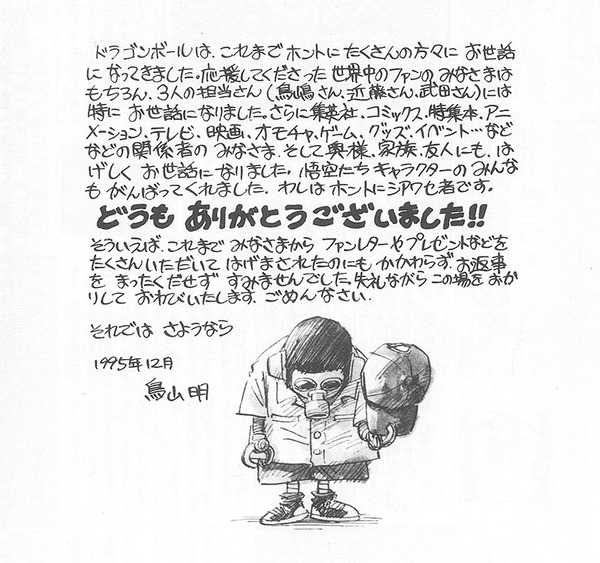 ドラゴンボールは、これまでホントにたくさんの方々にお世話
になってきました。応援してくださった世界中のファンのみなさまは
もちろん、3人の担当さん(鳥嶋さん、近藤さん、武田さん)には
特にお世話になりました。さらに集英社、コミックス、特集本、アニ
メーション、テレビ、映画、オモチャ、ゲーム、グッズ、イベント…など
などの関係者のみなさま、そして奥様、家族、友人にも、は
げしくお世話になりました。悟空たちキャラクターのみんな
もがんばってくれました。わしはホントにシアワセ者です。
どうもありがとうございました!!
そういえば、これまでみなさまからファンレターやプレゼントなどを
たくさんいただいてはげまされたのにもかかわらず、お返事
をまったくだせずすみませんでした。失礼ながらこの場をおか
りしておわびいたします。ごめんなさい.
それではさようなら
1995年12月
鳥山明